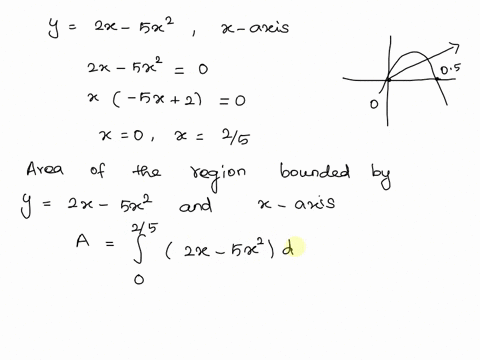 y = 2x - 5x² , x-axis
2x - 5x² = 0
x (-5x + 2) = 0
x = 0 , x = 2/5
0
0.5
Area of the region bounded by
y = 2x - 5x² and x-axis
A = ∫₀^{2/5} (2x - 5x²) d